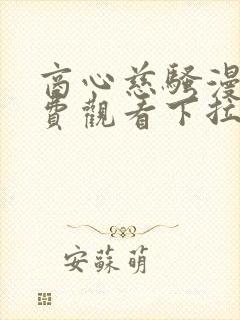 商心慈騷漫
費觀看下拉
安蘇萌